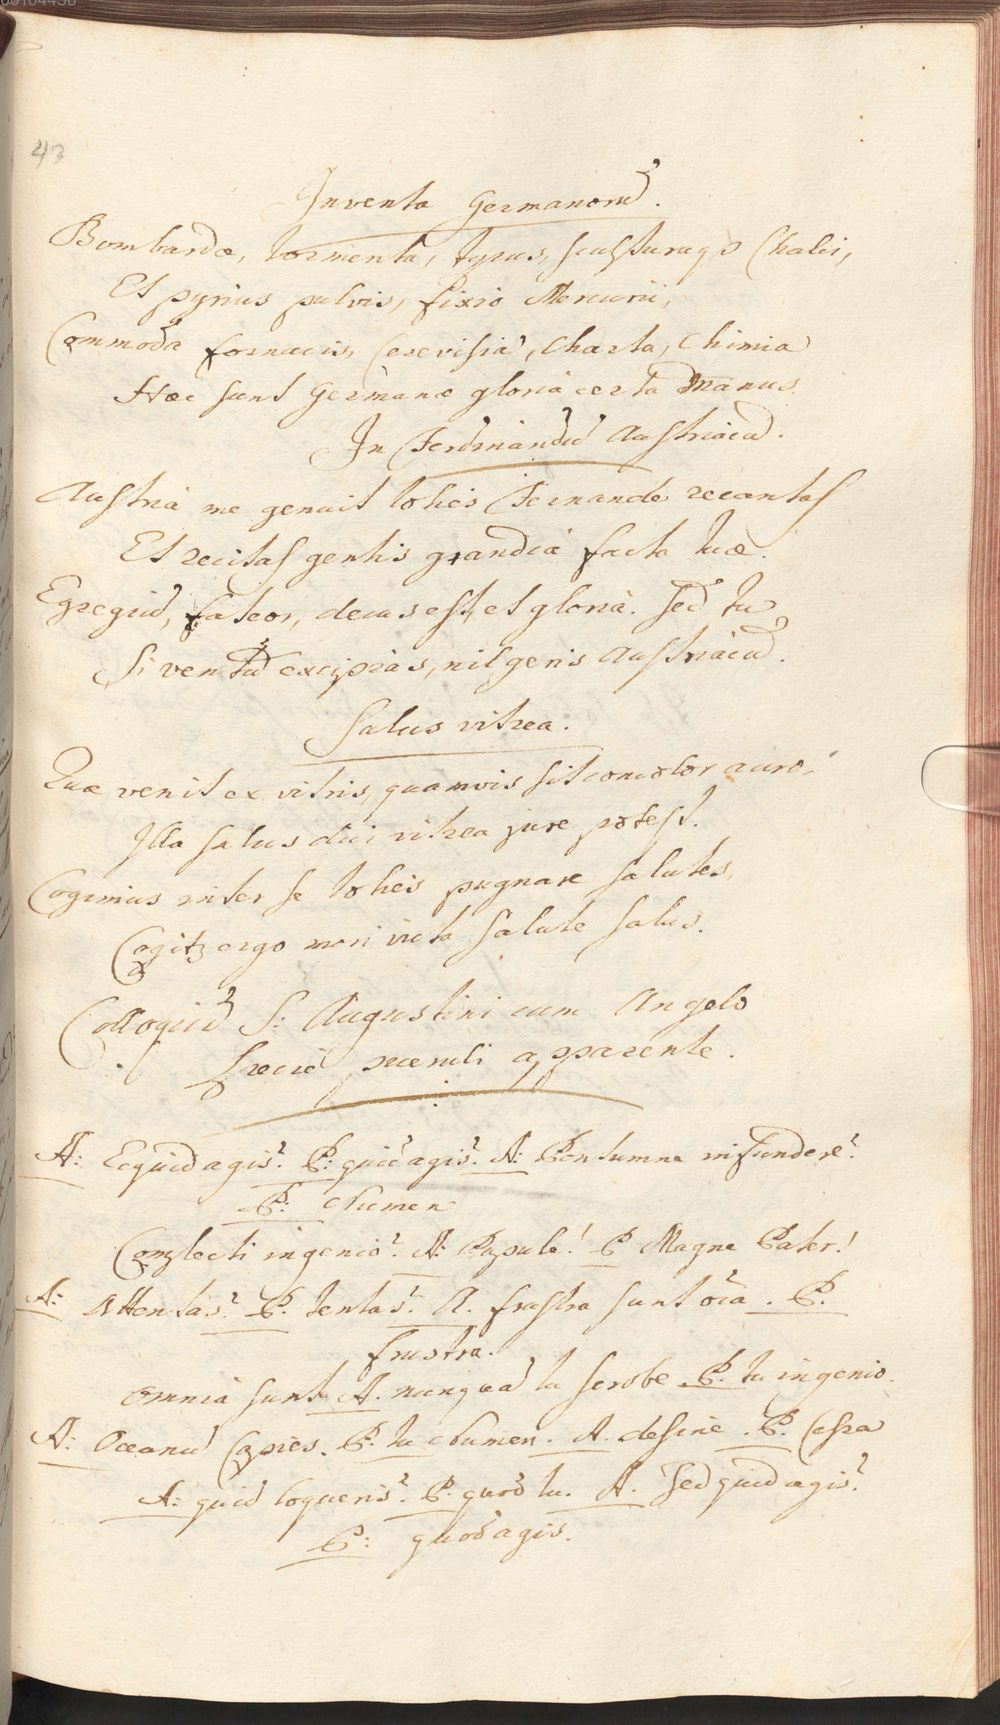 43
Inventa Germanorũ.
Bombardæ, tormenta, typus, sculpturaqȝ Chalii,
Et pyrius pulvis, fixio Mercurii,
Commoda fornacis, Cerevisia, Charta, Chimia
Hæc sunt Germanæ gloria certa Manus.
In Ferdinandũ Austriacũ.
Austria me genuit toties Fernande recantas
Et recitas gentis grandia facta tuæ.
Egregiũ, fateor, decus est, et gloria. Sed tu
Si ventũ excipias, nil geris Austriacũ.
Salus vitrea.
Quæ venit ex vitris, quamvis sit concolor auro,
Illa salus dici vitrea jure potest.
Cogimus inter se toties pugnare salutes,
Cogitȝ ergo mori victa salute salus.
Colloquiũ S: Augustini cum Angelo
Specie pueruli apparente.
A: Ecquid agis? P: quid agis? A: Pontumne infundere?
P: Numen
Complecti ingenio? A: Pupule! P Magne Pater!
A: Attentas? P: tentas? A. frustra sunt oĩa. P.
frustra.
omnia sunt A. nunquã tu scrobe P: tu ingenio.
A: Oceanũ Capies. P: tu Numen. A. desine. P: Cessa
A: quid loqueris? P: quod tu. A. Sed quid agis?
P: quod agis.